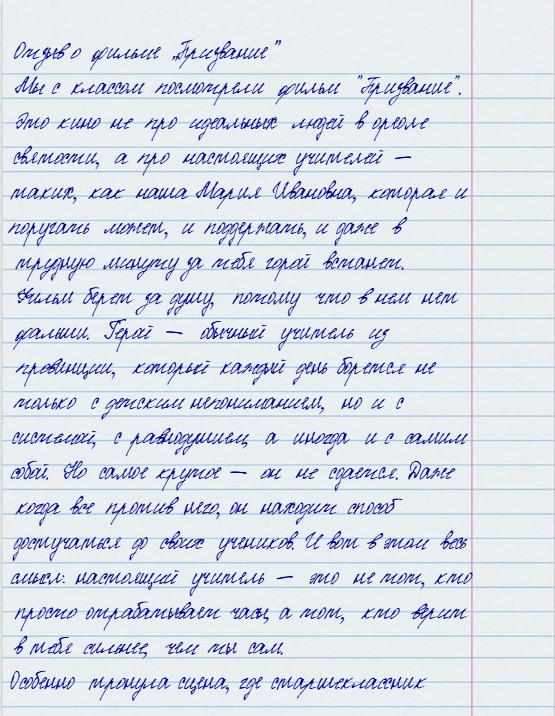 Отзыв о фильме „Призвание"
Мы с классом посмотрели фильм "Призвание".
Это кино не про идеальных людей в ореоле
святости, а про настоящих учителей —
таких, как наша Мария Ивановна, которая и
поругать может, и поддержать, и даже в
трудную минуту за тебя горой встанет.
Фильм берет за душу, потому что в нем нет
фальши. Герой — обычный учитель из
провинции, который каждый день борется не
только с детским непониманием, но и с
системой, с равнодушием, а иногда и с самим
собой. Но самое крутое — он не сдается. Даже
когда все против него, он находит способ
достучаться до своих учеников. И вот в этом весь
смысл: настоящий учитель — это не тот, кто
просто отрабатывает часы, а тот, кто верит
в тебя сильнее, чем ты сам.
Особенно тронула сцена, где старшеклассник